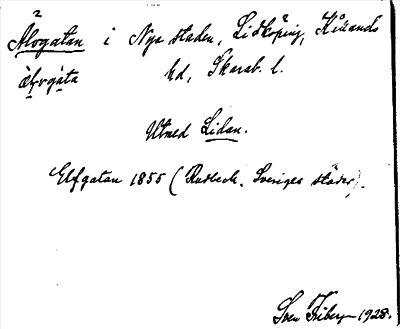 Älvgatan i Nya staden, Lidköping, Kållands
älvgàta hd, Skarab. l.
Utmed Lidan.
Elfgatan 1855 (Rudbeck. Sveriges städer).
Sven Friberg 1928.